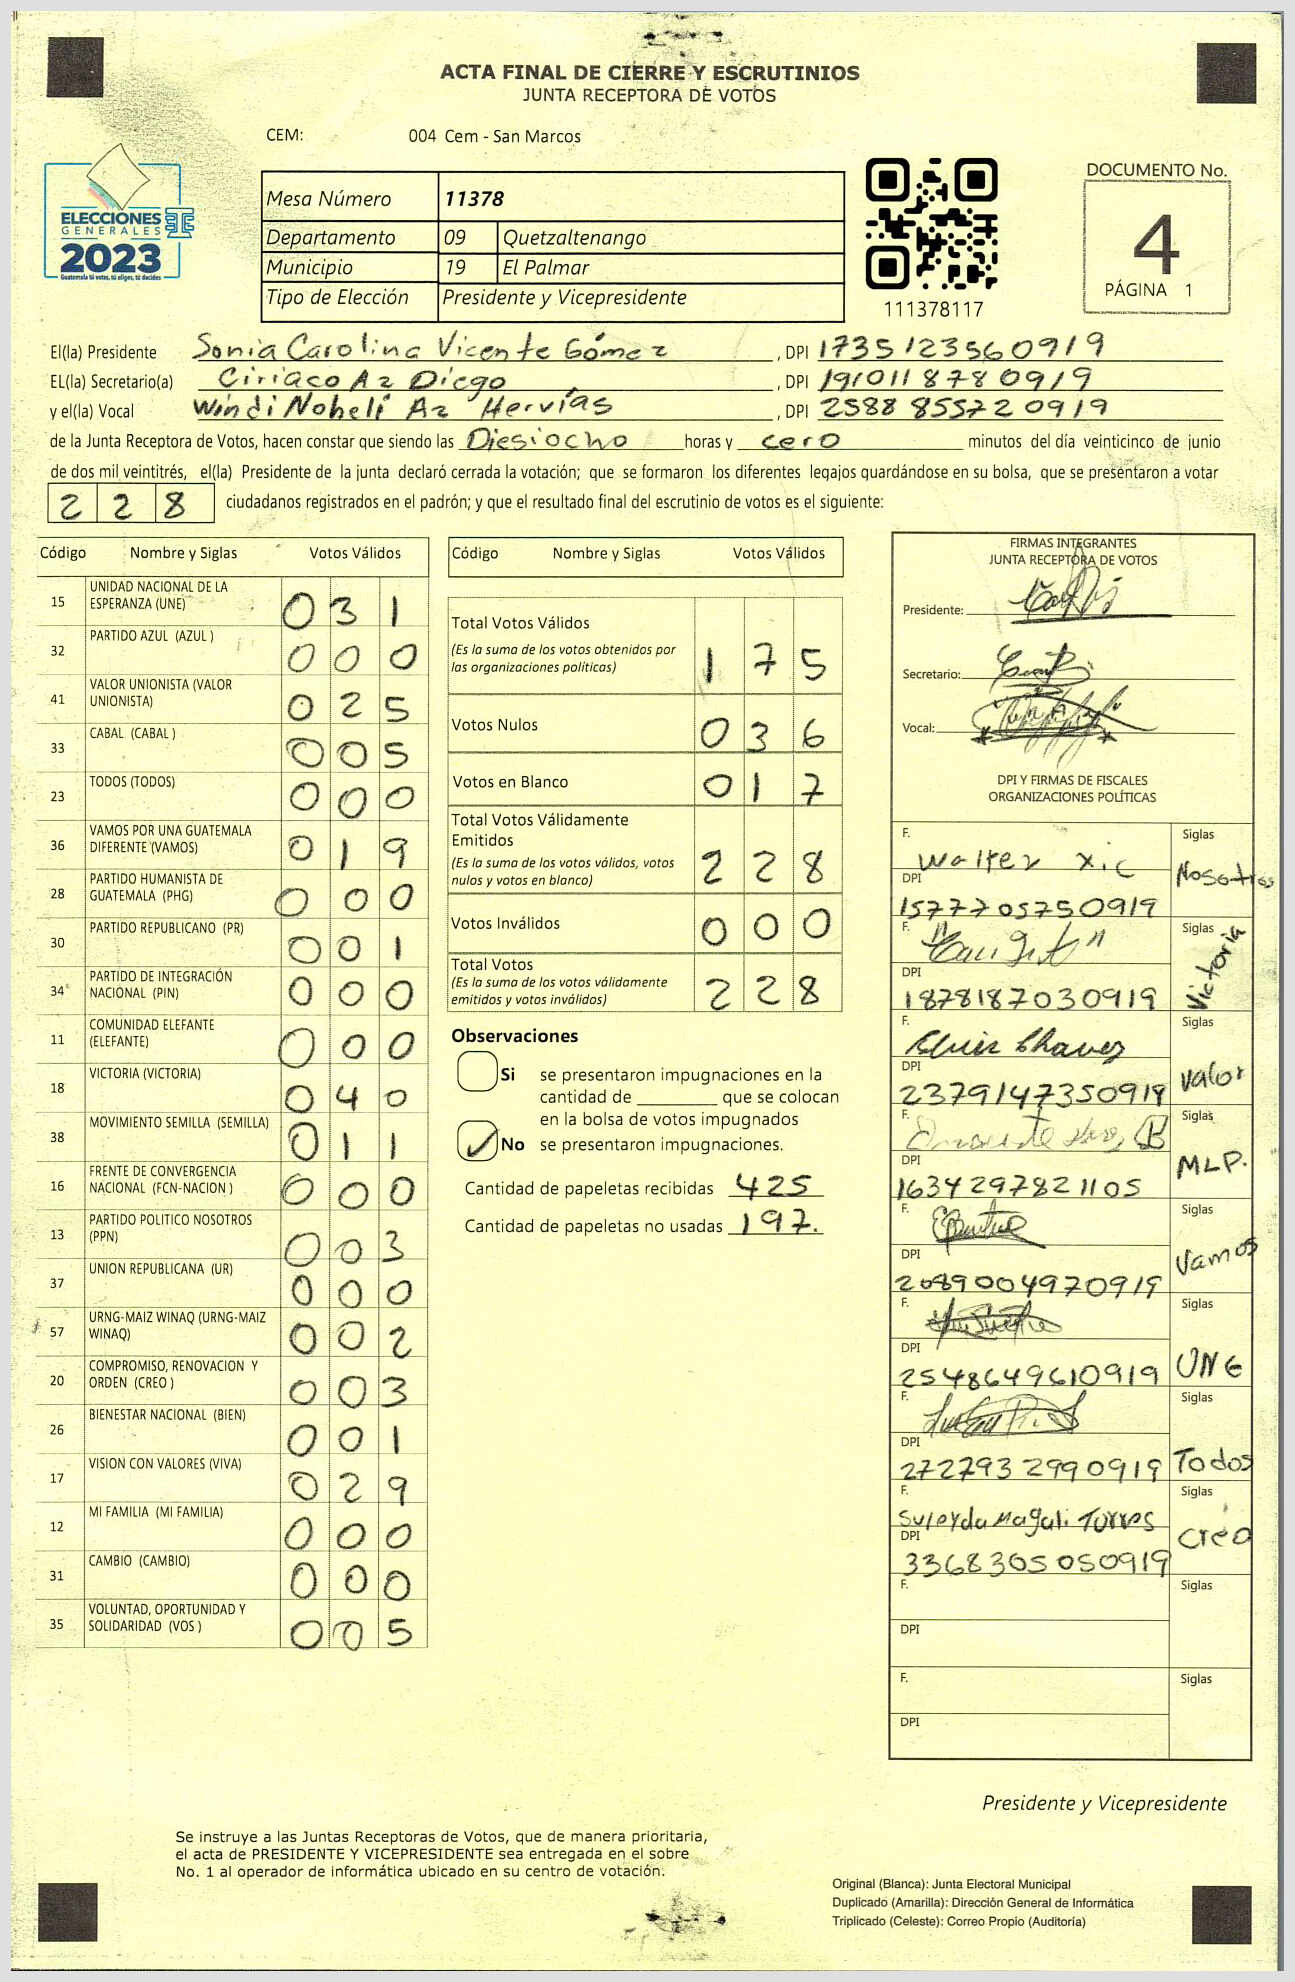 ACTA FINAL DE CIERRE Y ESCRUTINIOS
JUNTA RECEPTORA DE VOTOS
CEM: 004 Cem - San Marcos
ELECCIONES
GENERALES
2023
Guatemala tú votas, tú eliges, tú decides
Mesa Número 11378
Departamento 09 Quetzaltenango
Municipio 19 El Palmar
Tipo de Elección Presidente y Vicepresidente
111378117
DOCUMENTO No.
4
PÁGINA 1
El(la) Presidente Sonia Carolina Vicente Gómez, DPI 1735123560919
EL(la) Secretario(a) Ciriaco Az Diego, DPI 1910118780919
y el(la) Vocal Windi Nohelí Az Hervías, DPI 2588855720919
de la Junta Receptora de Votos, hacen constar que siendo las Diesiocho horas y cero minutos del día veinticinco de junio
de dos mil veintitrés, el(la) Presidente de la junta declaró cerrada la votación; que se formaron los diferentes legajos guardándose en su bolsa, que se presentaron a votar
228 ciudadanos registrados en el padrón; y que el resultado final del escrutinio de votos es el siguiente:
Código Nombre y Siglas Votos Válidos
15 UNIDAD NACIONAL DE LA ESPERANZA (UNE) 031
32 PARTIDO AZUL (AZUL ) 000
41 VALOR UNIONISTA (VALOR UNIONISTA) 025
33 CABAL (CABAL ) 005
23 TODOS (TODOS) 000
36 VAMOS POR UNA GUATEMALA DIFERENTE (VAMOS) 019
28 PARTIDO HUMANISTA DE GUATEMALA (PHG) 000
30 PARTIDO REPUBLICANO (PR) 001
34 PARTIDO DE INTEGRACIÓN NACIONAL (PIN) 000
11 COMUNIDAD ELEFANTE (ELEFANTE) 000
18 VICTORIA (VICTORIA) 040
38 MOVIMIENTO SEMILLA (SEMILLA) 011
16 FRENTE DE CONVERGENCIA NACIONAL (FCN-NACION ) 000
13 PARTIDO POLITICO NOSOTROS (PPN) 003
37 UNION REPUBLICANA (UR) 000
57 URNG-MAIZ WINAQ (URNG-MAIZ WINAQ) 002
20 COMPROMISO, RENOVACION Y ORDEN (CREO ) 003
26 BIENESTAR NACIONAL (BIEN) 001
17 VISION CON VALORES (VIVA) 029
12 MI FAMILIA (MI FAMILIA) 000
31 CAMBIO (CAMBIO) 000
35 VOLUNTAD, OPORTUNIDAD Y SOLIDARIDAD (VOS ) 005
Código Nombre y Siglas Votos Válidos
Total Votos Válidos 175
(Es la suma de los votos obtenidos por
las organizaciones políticas)
Votos Nulos 036
Votos en Blanco 017
Total Votos Válidamente
Emitidos 228
(Es la suma de los votos válidos, votos
nulos y votos en blanco)
Votos Inválidos 000
Total Votos 228
(Es la suma de los votos válidamente
emitidos y votos inválidos)
Observaciones
Si se presentaron impugnaciones en la
cantidad de ________ que se colocan
en la bolsa de votos impugnados
No se presentaron impugnaciones.
Cantidad de papeletas recibidas 425
Cantidad de papeletas no usadas 197.
FIRMAS INTEGRANTES
JUNTA RECEPTORA DE VOTOS
Presidente:
Secretario:
Vocal:
DPI Y FIRMAS DE FISCALES
ORGANIZACIONES POLÍTICAS
F. Walter Xic Siglas Nosotros
DPI 1577705750919
F. Siglas Victoria
DPI 1878187030919
F. Elvis Chavez Siglas Valor
DPI 2379147350919
F. Siglas MLP.
DPI 1634297821105
F. Siglas Vamos
DPI 2089004970919
F. Siglas UNE
DPI 2548649610919
F. Siglas Todos
DPI 2727932990919
F. Suleyda Magali Torres Siglas Creo
DPI 3368305050919
F. Siglas
DPI
F. Siglas
DPI
Presidente y Vicepresidente
Se instruye a las Juntas Receptoras de Votos, que de manera prioritaria,
el acta de PRESIDENTE Y VICEPRESIDENTE sea entregada en el sobre
No. 1 al operador de informática ubicado en su centro de votación.
Original (Blanca): Junta Electoral Municipal
Duplicado (Amarilla): Dirección General de Informática
Triplicado (Celeste): Correo Propio (Auditoría)